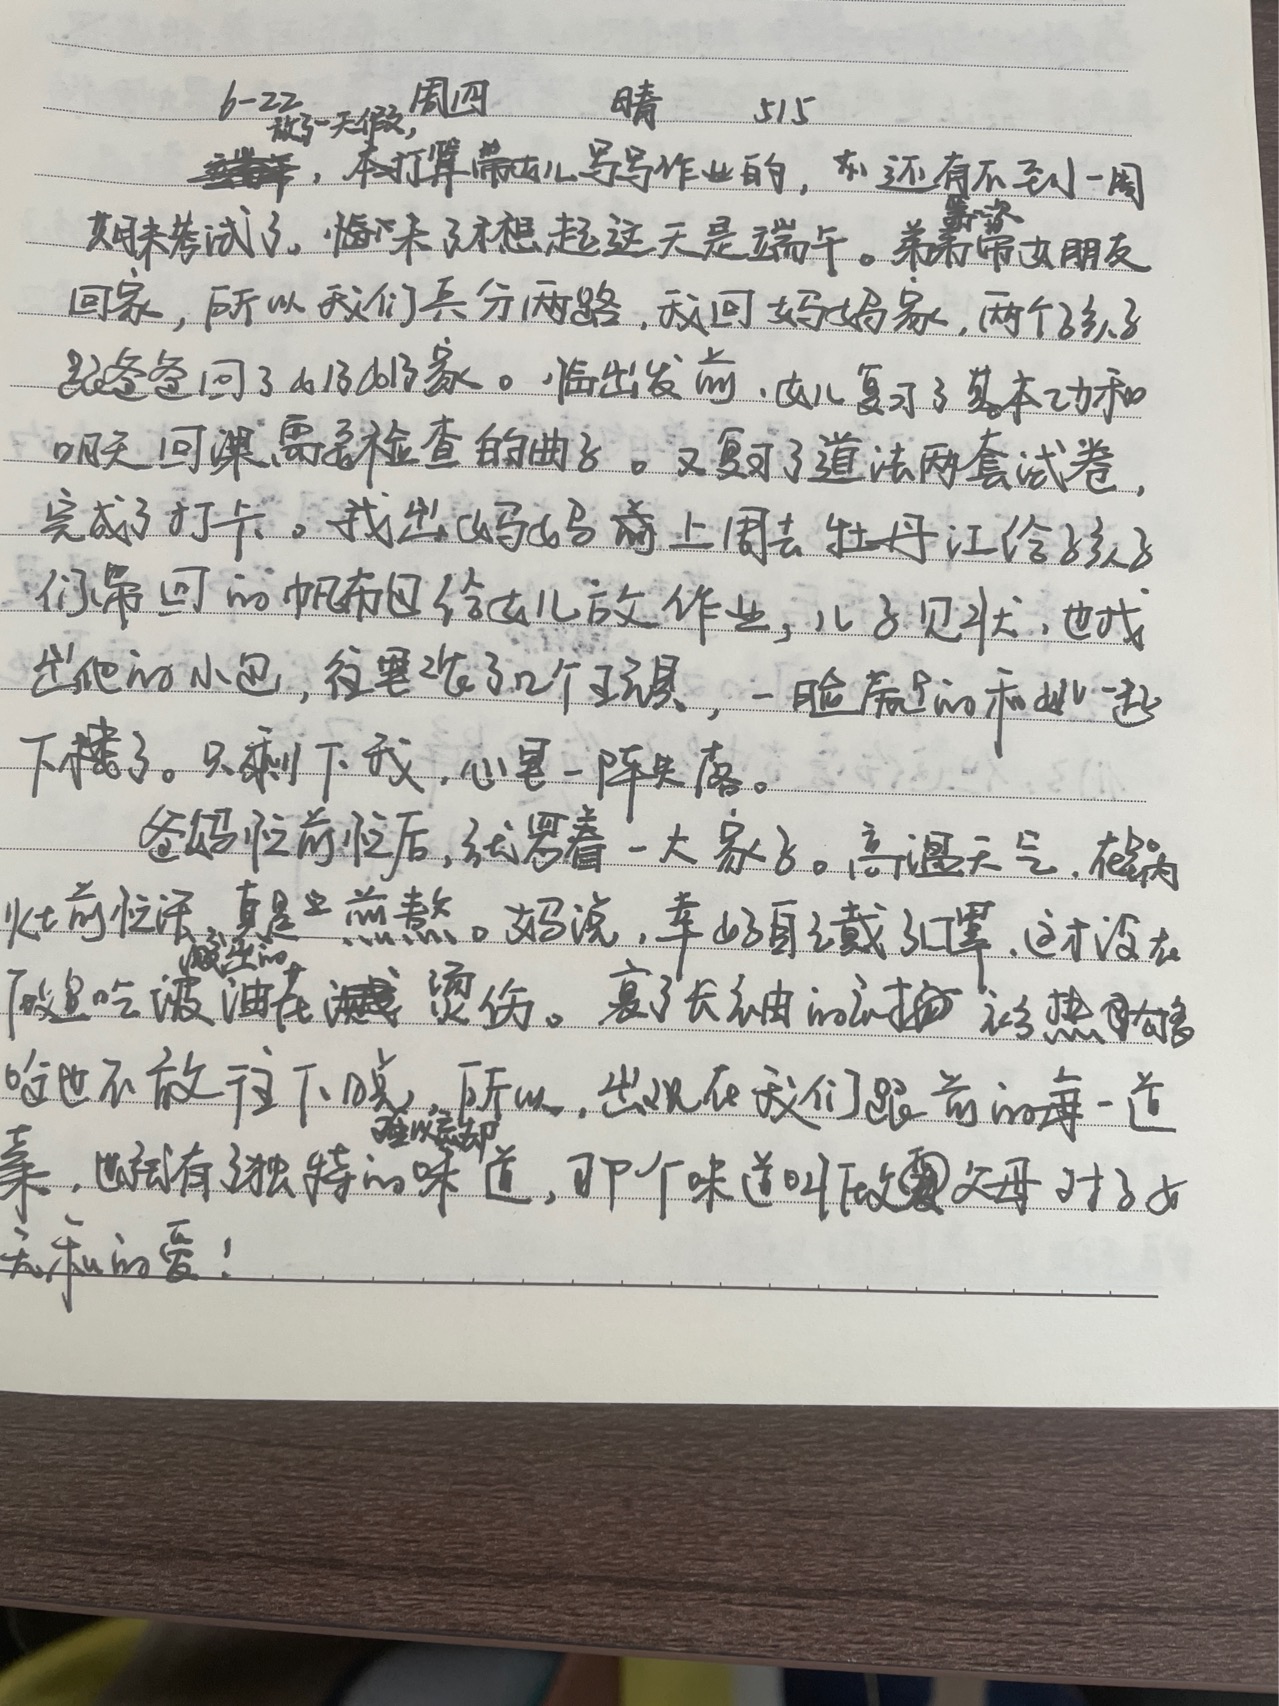 6-22 周四 晴 515
放了一天假,
本打算带女儿写写作业的，还有不到一周
期末考试了。临末了才想起这天是端午。弟弟带女朋友
回家，所以我们兵分两路，我回妈妈家，两个孩子
跟爸爸回了奶奶家。临出发前，女儿复习了基本功和
明天回课需要检查的曲子。又复习了道法两套试卷，
完成了打卡。找出妈妈上周去牡丹江给孩子
们带回的帆布包给女儿放作业，儿子见状，也找
出他的小包，往里装了几个玩具，一脸满足的和姐姐一起
下楼了。只剩下我，心里一阵失落。
爸妈忙前忙后，张罗着一大家子。高温天气，在锅
灶前忙活，真是煎熬。妈说，幸好自己戴了口罩，这才没在
溅出的
被油花烫伤。穿了长袖的衣
也不敢往下脱，所以，出现在我们跟前的每一道
难以忘却
菜，也就有了独特的味道，那个味道叫做父母对子女
无私的爱！